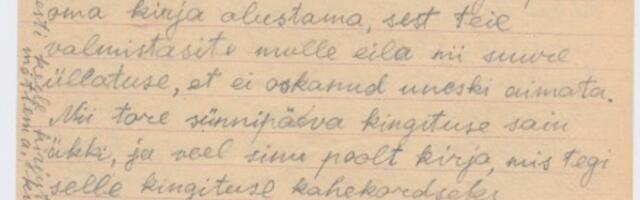 oma kirja alustama, sest teie
valmistasite mulle eila nii suure
üllatuse, et ei oskanud uneski aimata.
Nii tore sünnipäeva kingituse sain
äkki, ja veel sinu poolt kirja, mis tegi
selle kingituse kahekordseks